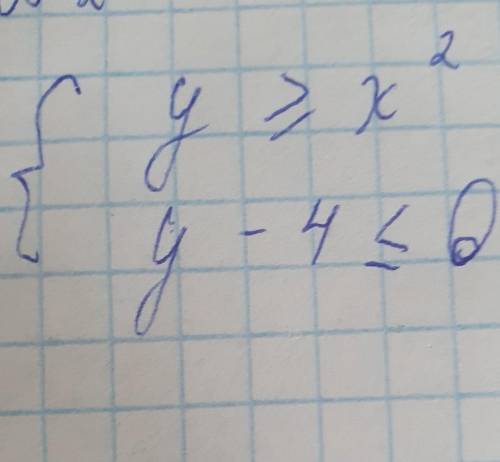 { y ≥ x²
y - 4 ≤ 0